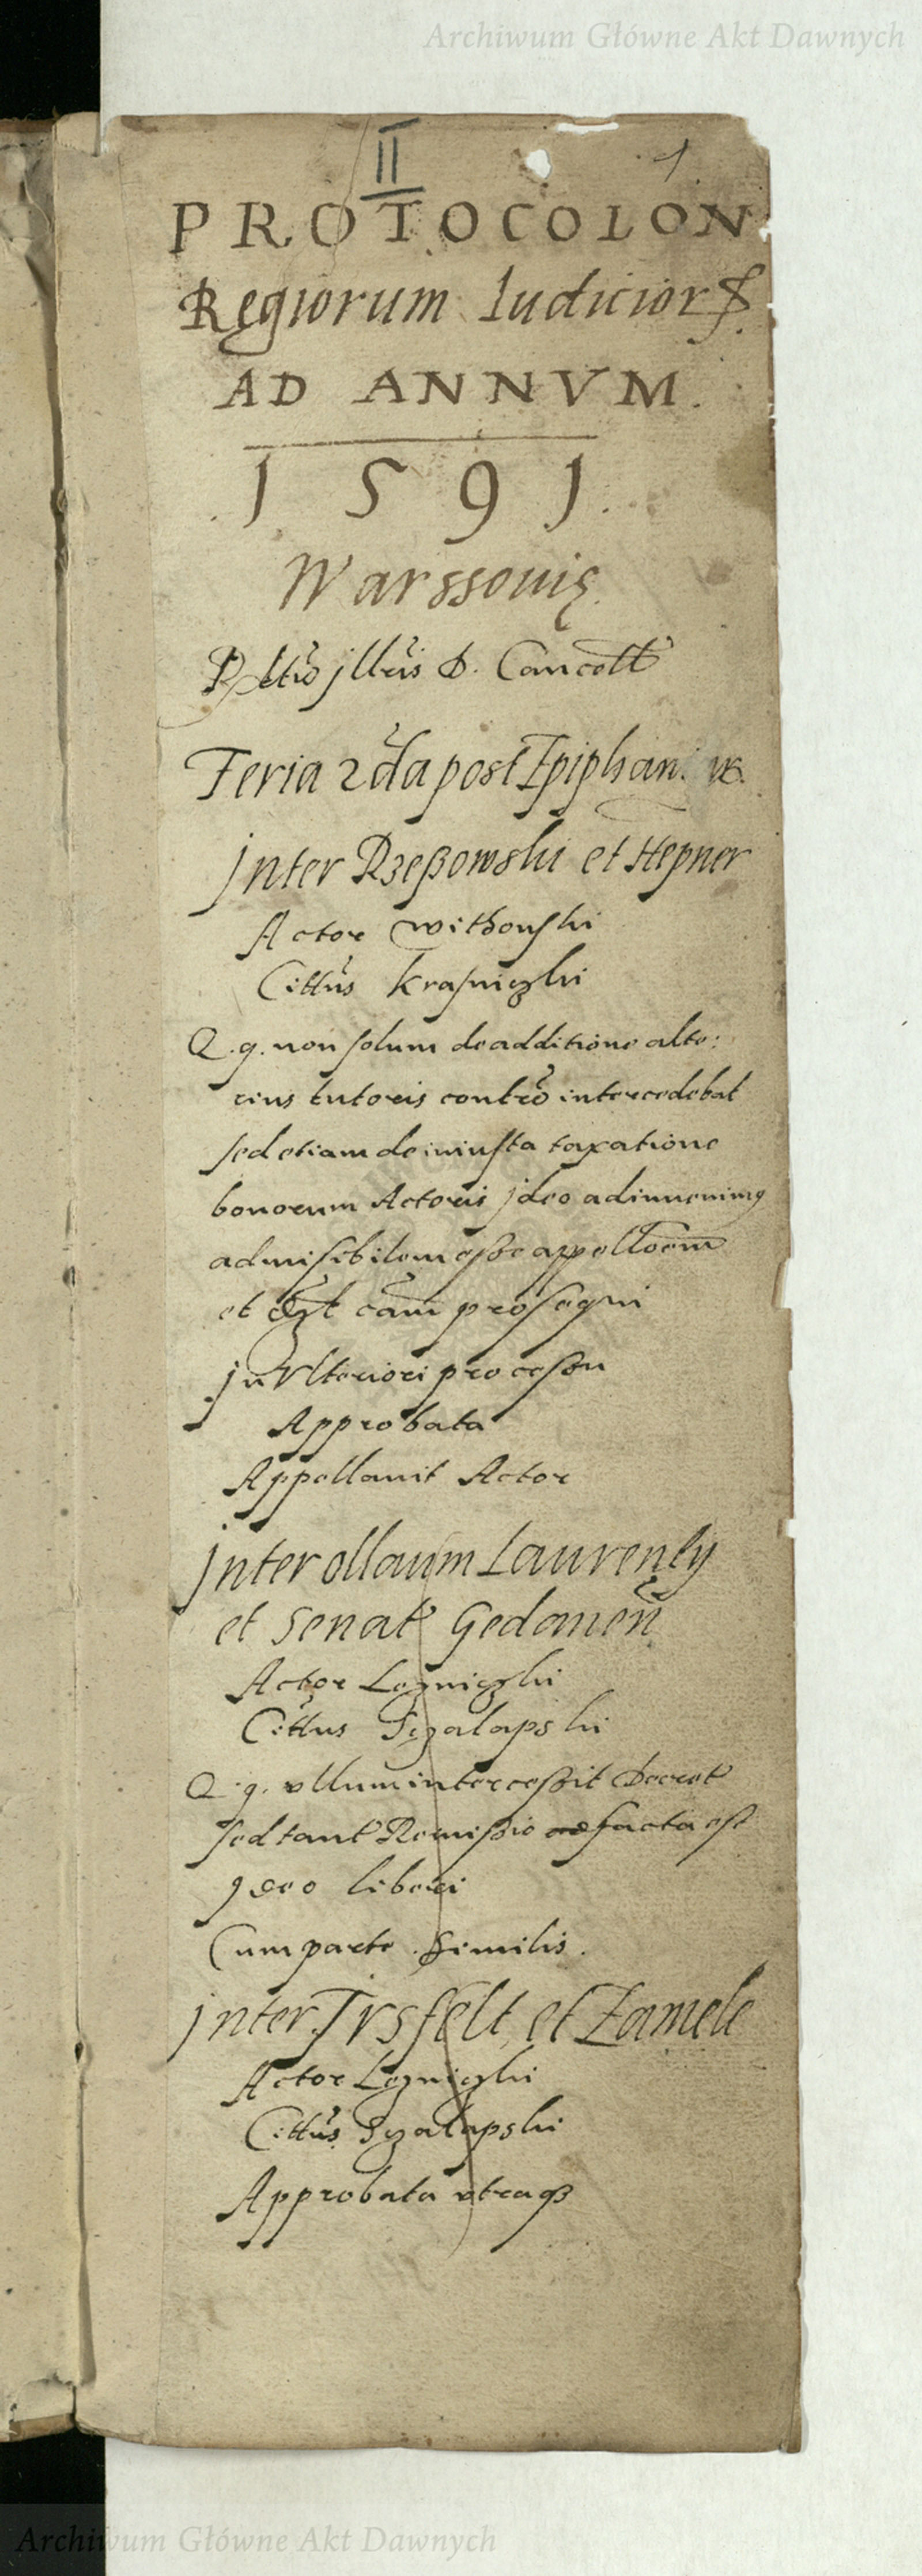 Archiwum Główne Akt Dawnych
II
1
PROTOCOLON
Regiorum Iudicior
AD ANNVM.
1591.
Warssouię.
illris D. Cancell
Feria 2da post Epiphan
Inter Rzeßowski et Hepner
Actor Withowski
Cittus Krasniczki
Q. q. non solum de additione alte:
rius tutoris contro intercedebat
sed etiam de iniusta taxatione
bonorum Actoris ideo adinuenimus
admisibilem esse appellocem
et eam prosequi
In Vlteriori processu
Approbata
Appellauit Actor
Inter ollaum Laurenty
et Senat Gedanen
Actor Lozniczki
Cittus Szalapski
Q. q. vllum intercessit Decret
sed tant Remissio facta est
Ideo liberi
Cum parte Similis.
Inter Irsfelt et Zamele
Actor Lozniczki
Cittus Szalapski
Approbata vtraq
Archiwum Główne Akt Dawnych